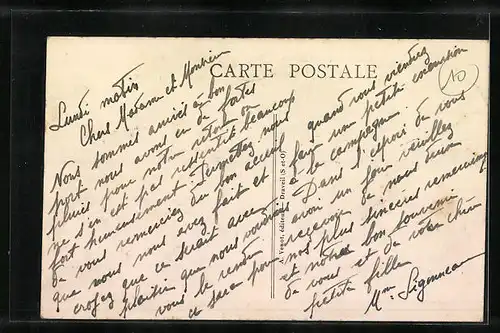 CARTE POSTALE
NO
Lundi matin
Chers Madame et Monsieur
Nous sommes arrivés à bon
port nous avons eu de fortes
pluies pour notre retour on
ne s'en est pas ressentit beaucoup
fort heureusement. Permettez nous
de vous remercier du bon accueil
que vous nous avez fait et
croyez que ce serait avec
plaisir que nous voudrions
vous le rendre
ce sera pour
quand vous viendrez
faire une petite excursion
à la campagne.
Dans l'espoir de vous
avoir un jour veuillez
recevoir de nous deux
nos plus sincères remerciements
et notre bon souvenir
de vous et de votre chère
petite fille
Mme Ligonneau
A. Yenot, éditeur, Draveil (S.-et-O.)